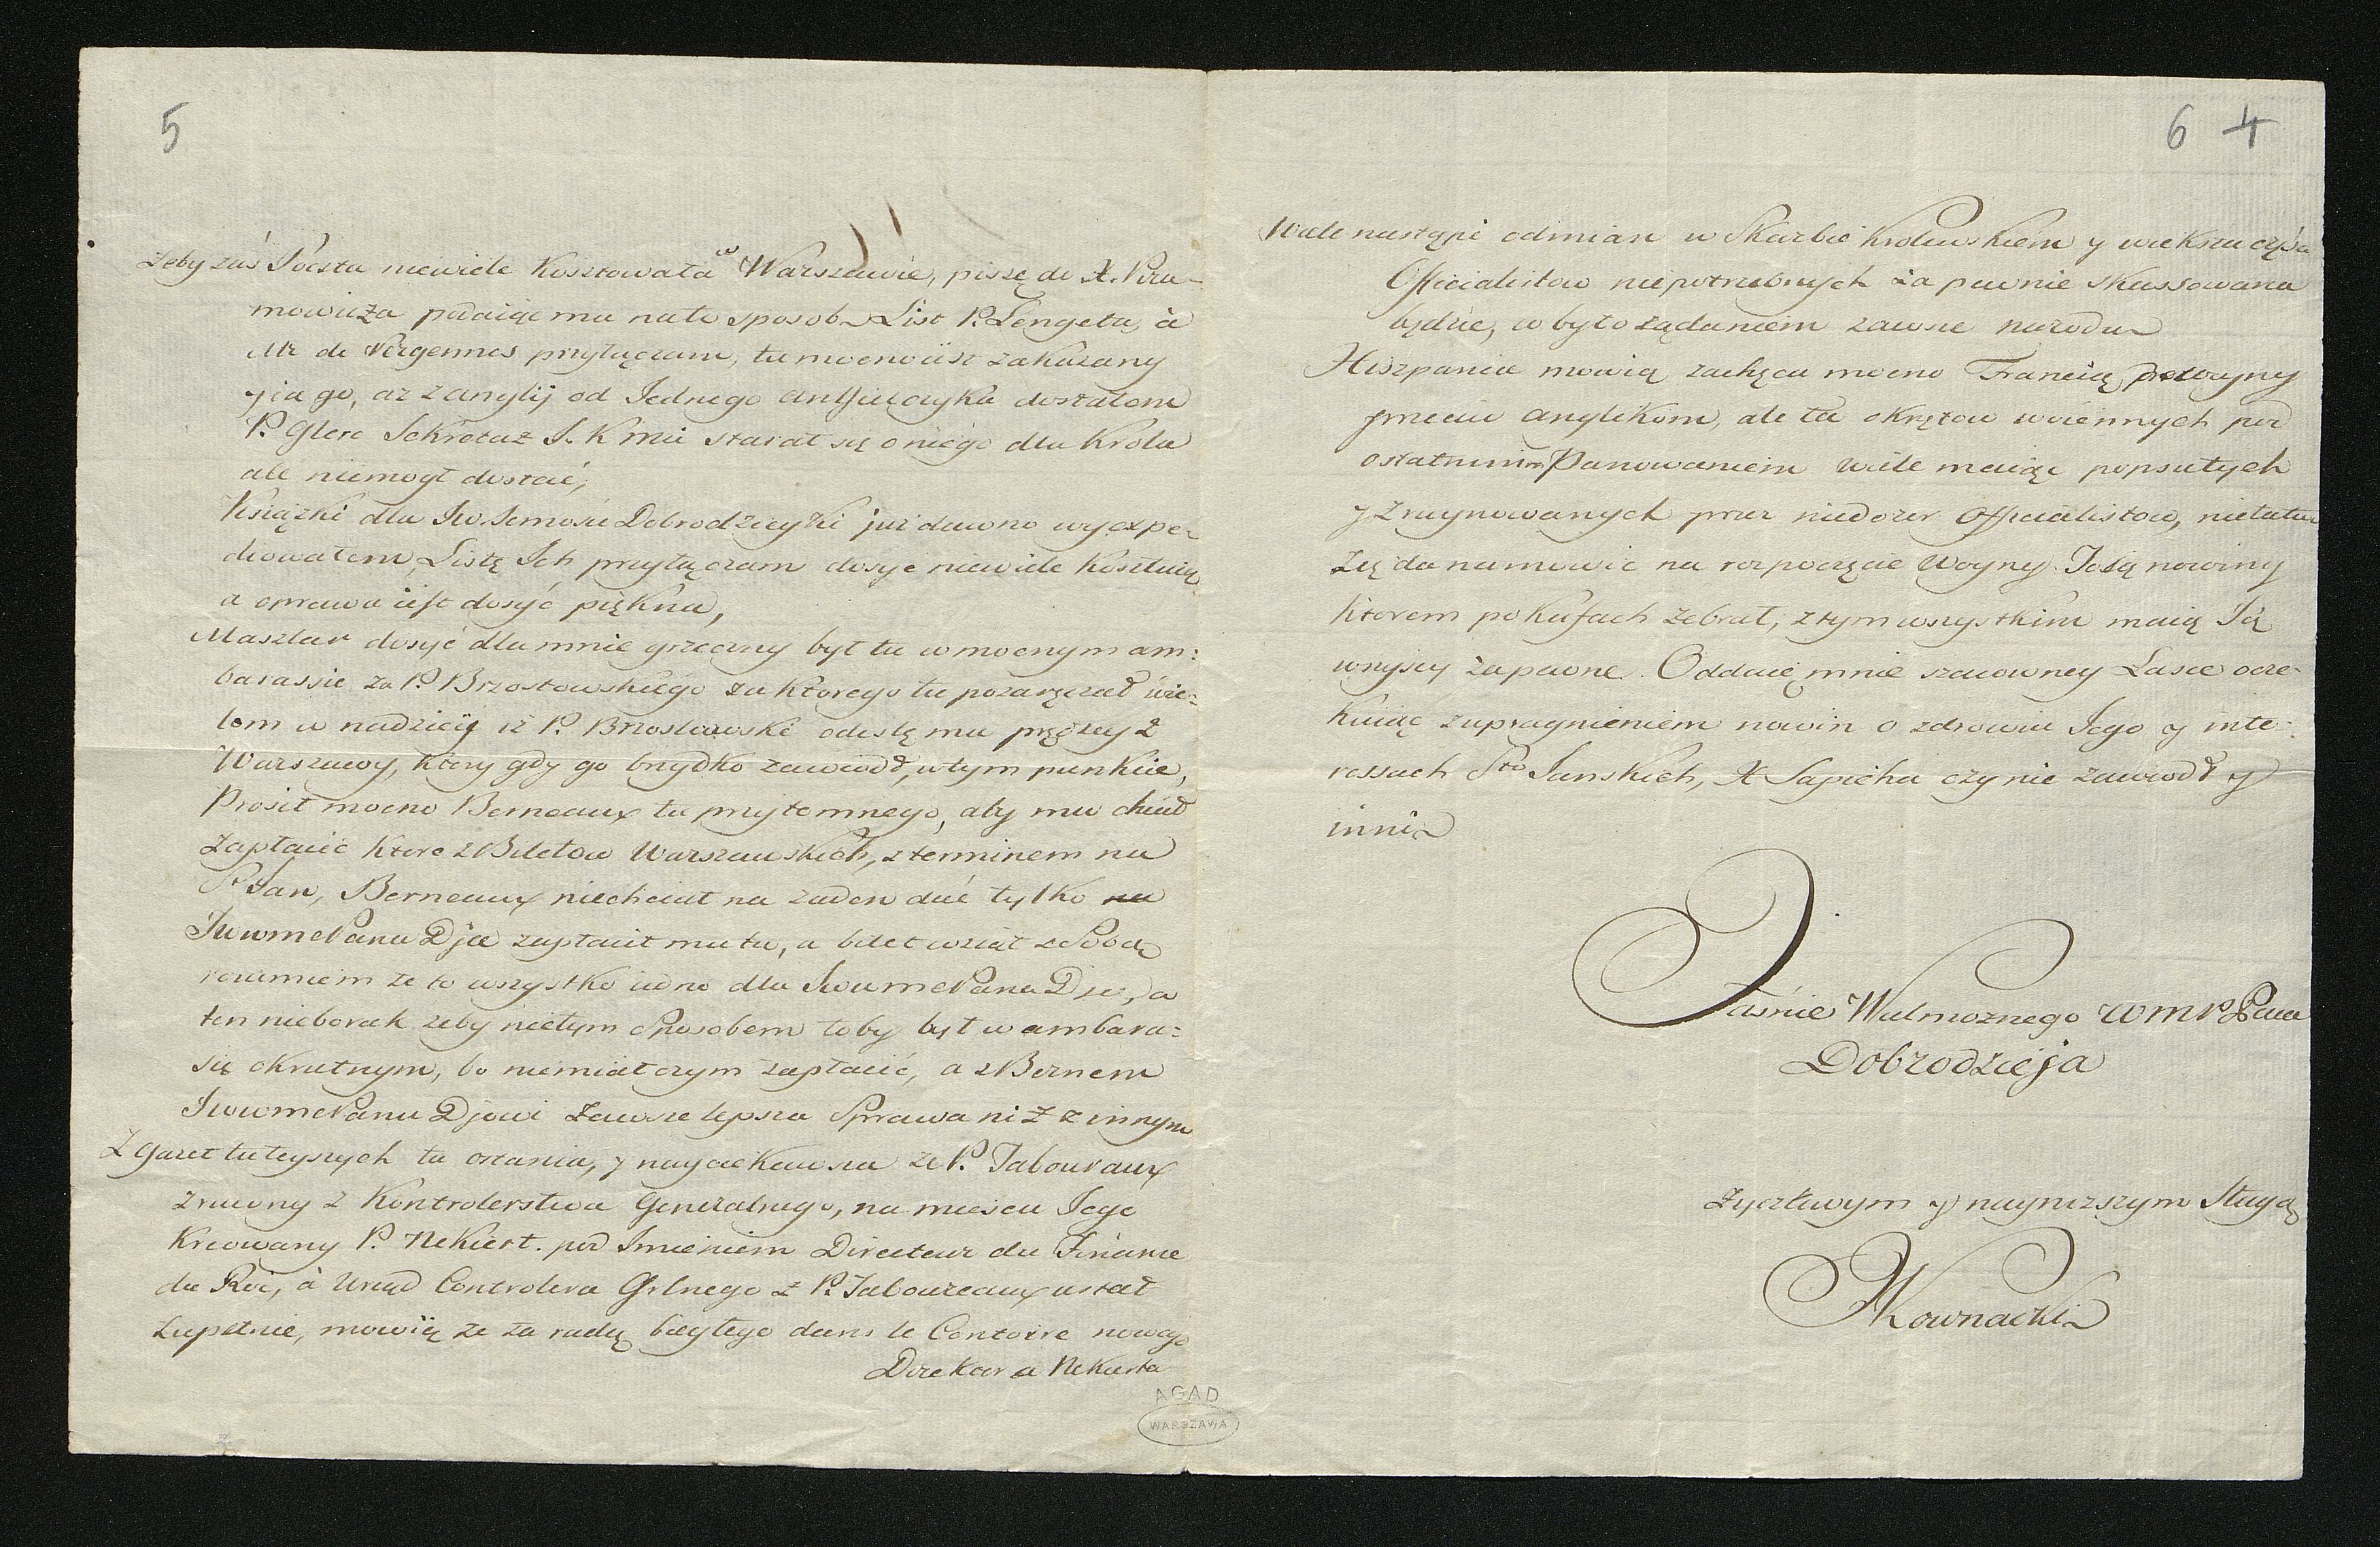 5
Zeby zaś Poczta niewiele kosztowała w Warszawie, piszę do X. Pira-
mowicza podaiąc mu na to sposob. List P. Lengeta à
Mr de Vergennes przyłączam, tu mocno iest zakazany
y ia go, az z anglij od Jednego anglika dostałem
P. Glere Sekretaz J. K mci starał się o niego dla Krola
ale niemogł dostać,
Ksiązki dla Jw Jemości Dobrodzieyki już dawno wyexpe-
diowałem, Listę Ich przyłączam dosyc niewiele kosztuią
a oprawa iest dosyć piękna,
Maszlar dosyć dla mnie grzeczny był tu w mocnym am:
barassie za P. Brzostowskiego za ktorego tu pozaręczał wie:
lom w nadzieię iz P. Brzostowski odeszlę mu prędzey z
Warszawy, ktory gdy go brzydko zawiodł, w tym punkcie,
Prosił mocno Berneaux tu przytomnego, aby mu chciał
zapłacić ktore z Biletow Warszawskich, z terminem na
St Jan, Berneaux niechciał na zaden dać tylko na
JwwmcPana Dja zapłacił mu tu, a bilet wziął z Pod
rozumiem ze to wszystko iedno dla JwwmcPana Dja, a
ten nieborak zeby nie tym sposobem toby był w ambara:
się okrutnym, bo niemiał czym zapłacić, a z Bernem
JwwmcPanu Djowi zawsze lepsza Sprawa niz z innym
Z gazet tuteyszych ta ostania, y nayciekawsza ze P. Taboureaux
zrucony z Kontrolerstwa Generalnego, na miescu Jego
Kreowany P. Nekiert. pod Imieniem Directeur du Finance
du Roi, à Urząd Controlera Grlnego z P. Taboureaux ustał
zupełnie, mowią ze za radą biegłego dans le Contoire nowego
Direktora Nekierta
AGAD
WARSZAWA
6 4
Wiele nastąpi odmian w Skarbie Krolewskiem y wieksza częśc
Officialistow niepotrzebnych zapewnie skassowana
będzie, co było ządaniem zawsze narodu
Hiszpania mowią zachęca mocno Francią do woyny
przeciw anglikom, ale ta okrętow woiennych pod
ostatnim Panowaniem wiele maiąc popsutych
y zruynowanych przez niedozor Officialistow, nie łatwo
się da namowic na rozpoczęcie Woyny. To są nowiny
ktorem po Kafach zebrał, z tym wszystkim maią Ią
wnyiscy zapewne. Oddaię mnie szacowney Łasce ocze-
kuiąc z upragnieniem nowin o zdrowiu Jego y inte-:
ressach Sto Janskich, X Sapieha czy nie zawiodł y
inni
Jaśnie Wielmoznego WMP Pana
Dobrodzieja
zyczliwym y naynizszym sługą
Kownacki